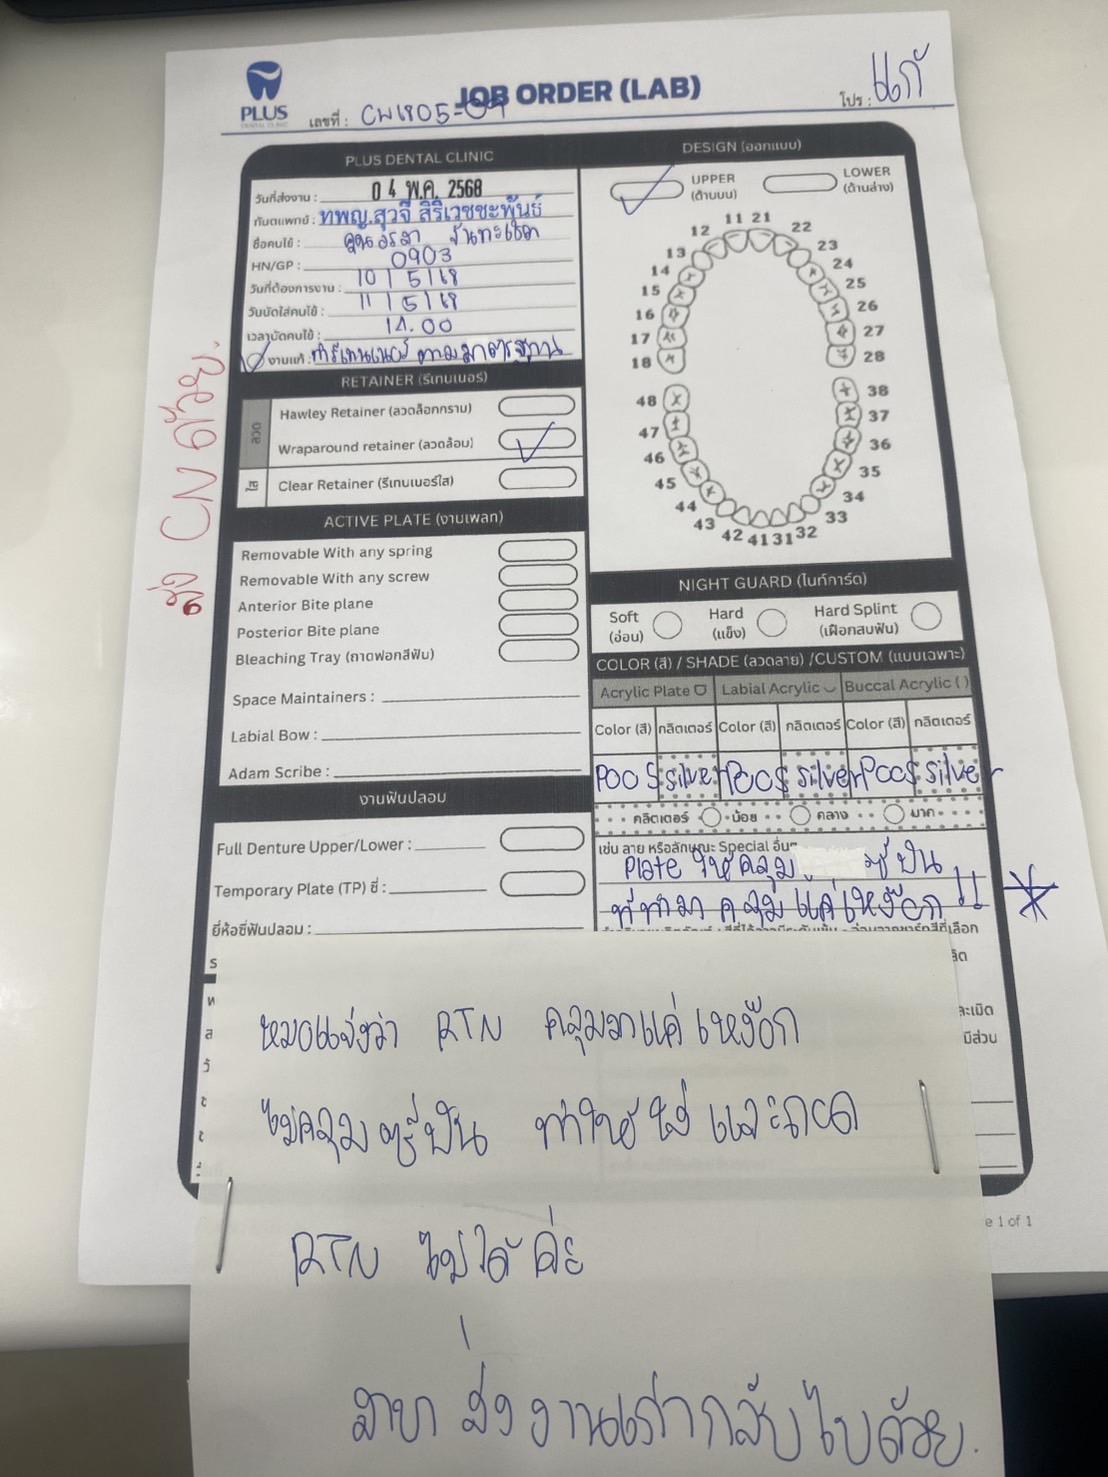 PLUS
DENTAL CLINIC
JOB ORDER (LAB)
เลขที่ : CN1805-09
โปร : แก้
PLUS DENTAL CLINIC
วันที่ส่งงาน : 0 4 พ.ค. 2568
ทันตแพทย์ : ทพญ.สุวจี สิริเวชชะพันธ์
ชื่อคนไข้ : คุณอรสา จันทะเชิด
HN/GP : 0903
วันที่ต้องการงาน : 10 / 5 / 68
วันนัดใส่คนไข้ : 11 / 5 / 68
เวลานัดคนไข้ : 14.00
งานแก้ : ทำรีเทนเนอร์ ตามมาตรฐาน
RETAINER (รีเทนเนอร์)
ลวด
Hawley Retainer (ลวดล็อกกราม)
Wraparound retainer (ลวดล้อม)
ใส
Clear Retainer (รีเทนเนอร์ใส)
ACTIVE PLATE (งานเพลท)
Removable With any spring
Removable With any screw
Anterior Bite plane
Posterior Bite plane
Bleaching Tray (ถาดฟอกสีฟัน)
Space Maintainers :
Labial Bow :
Adam Scribe :
งานฟันปลอม
Full Denture Upper/Lower :
Temporary Plate (TP) ซี่ :
ยี่ห้อซี่ฟันปลอม :
ส่ง CN ด้วย.
DESIGN (ออกแบบ)
UPPER
(ด้านบน)
LOWER
(ด้านล่าง)
11 21
12 22
13 23
14 24
15 25
16 26
17 27
18 28
48 38
47 37
46 36
45 35
44 34
43 33
42 41 31 32
NIGHT GUARD (ไนท์การ์ด)
Soft
(อ่อน)
Hard
(แข็ง)
Hard Splint
(เฝือกสบฟัน)
COLOR (สี) / SHADE (ลวดลาย) /CUSTOM (แบบเฉพาะ)
Acrylic Plate Labial Acrylic Buccal Acrylic ( )
Color (สี) กลิตเตอร์ Color (สี) กลิตเตอร์ Color (สี) กลิตเตอร์
P00S silver P00S silver P00S silver
กลิตเตอร์ น้อย กลาง มาก
เช่น ลาย หรือลักษณะ Special อื่นๆ
Plate ให้คลุม ซี่ฟัน
ที่ทำมา คลุมแค่เหงือก !!
หมอแจ้งว่า RTN คลุมมาแค่เหงือก
ไม่คลุมซี่ฟัน ทำให้ใส่และถอด
RTN ไม่ได้ ค่ะ
สาขา ส่งงานเก่ากลับไปด้วย.
e 1 of 1